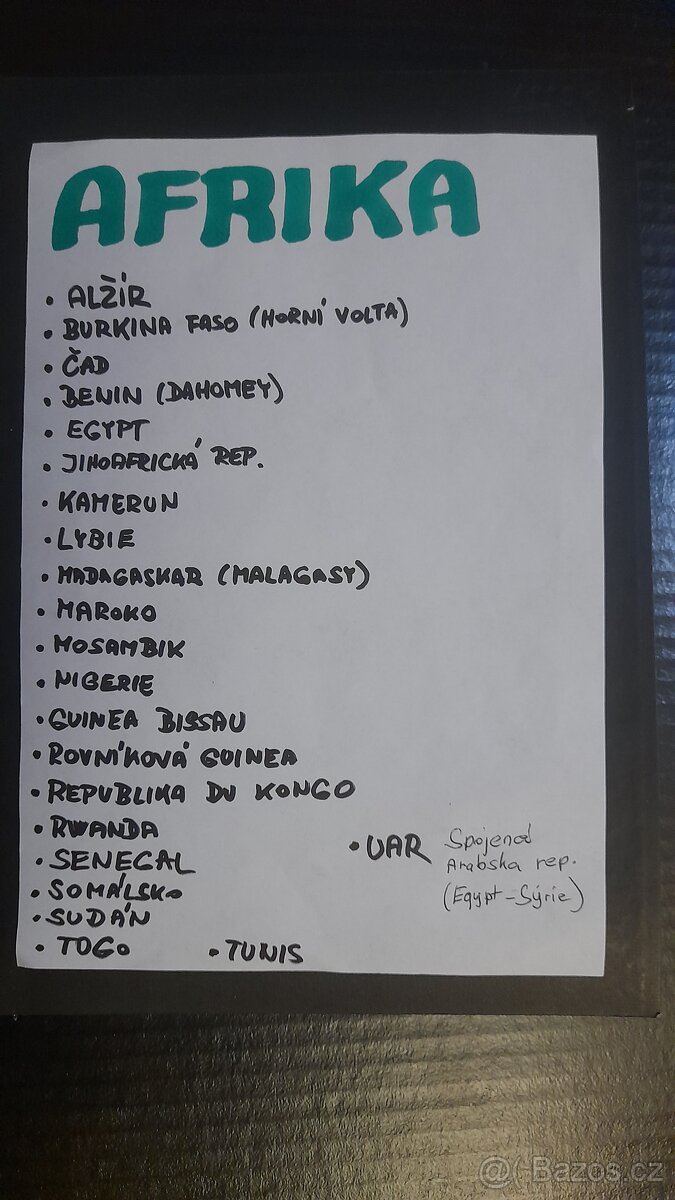 AFRIKA
• ALŽÍR
• BURKINA FASO (HORNÍ VOLTA)
• ČAD
• BENIN (DAHOMEY)
• EGYPT
• JIHOAFRICKÁ REP.
• KAMERUN
• LYBIE
• MADAGASKAR (MALAGASY)
• MAROKO
• MOSAMBIK
• NIGERIE
• GUINEA BISSAU
• ROVNÍKOVÁ GUINEA
• REPUBLIKA DU KONGO
• RWANDA
• SENEGAL
• SOMÁLSKO
• SUDÁN
• TOGO
• TUNIS
• UAR Spojená
Arabska rep.
(Egypt-Sýrie)
@ Bazoš.cz